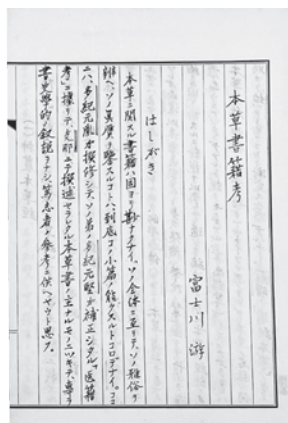 本草書籍考
富士川游
はしがき
本草ニ関スル書籍ハ固ヨリ尠ナクナイ。ソノ全体ニ亘リテ、ソノ雅俗ヲ
辨ヘ、ソノ真贋ヲ鑒スルコトハ、到底コノ小篇ノ能クスルトコロデナイ。ココ
ニハ、多紀元胤ガ撰修シテ、ソノ弟ノ多紀元堅ガ補正シタル「医籍
考」ニ據リテ、支那ニテ撰述セラレタル本草書ノ主ナルモノニツキテ、専ラ
書史学的ノ叙説ヲナシ篤志者ノ参考ニ供ヘヤウト思フ。